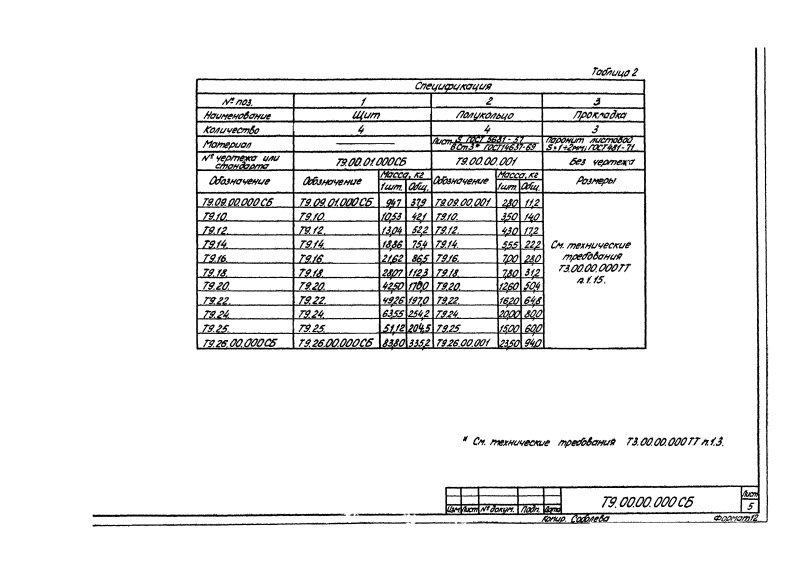 Таблица 2
Спецификация
№ поз. 1 2 3
Наименование Щит Полукольцо Прокладка
Количество 4 4 3
Материал Лист S ГОСТ 5681-57 / ВСт3* ГОСТ 14637-69 Паронит листовой S=1÷2мм; ГОСТ 481-71
№ чертежа или стандарта Т9.00.01.000СБ Т9.00.00.001 без чертежа
Обозначение Обозначение Масса, кг Обозначение Масса, кг Размеры
1шт. Общ. 1шт. Общ.
Т9.09.00.000СБ Т9.09.01.000СБ 9,47 37,9 Т9.09.00.001 2,80 11,2
Т9.10. Т9.10. 10,53 42,1 Т9.10. 3,50 14,0
Т9.12. Т9.12. 13,04 52,2 Т9.12. 4,30 17,2
Т9.14. Т9.14. 18,86 75,4 Т9.14. 5,55 22,2 См. технические
Т9.16. Т9.16 21,62 86,5 Т9.16. 7,00 28,0 требования
Т9.18. Т9.18. 28,07 112,3 Т9.18. 7,80 31,2 Т3.00.00.000ТТ
Т9.20. Т9.20. 42,50 170,0 Т9.20. 12,60 50,4 п.1.15.
Т9.22. Т9.22. 49,26 197,0 Т9.22. 16,20 64,8
Т9.24. Т9.24. 63,55 254,2 Т9.24. 20,00 80,0
Т9.25. Т9.25. 51,12 204,5 Т9.25 15,00 60,0
Т9.26.00.000СБ Т9.26.00.000СБ 83,80 335,2 Т9.26.00.001 23,50 94,0
* См. технические требования Т3.00.00.000ТТ п.1.3.
Т9.00.00.000СБ
Лист
5
Изм Лист № докум. Подп. Дата
Копир. Соболева Формат 12